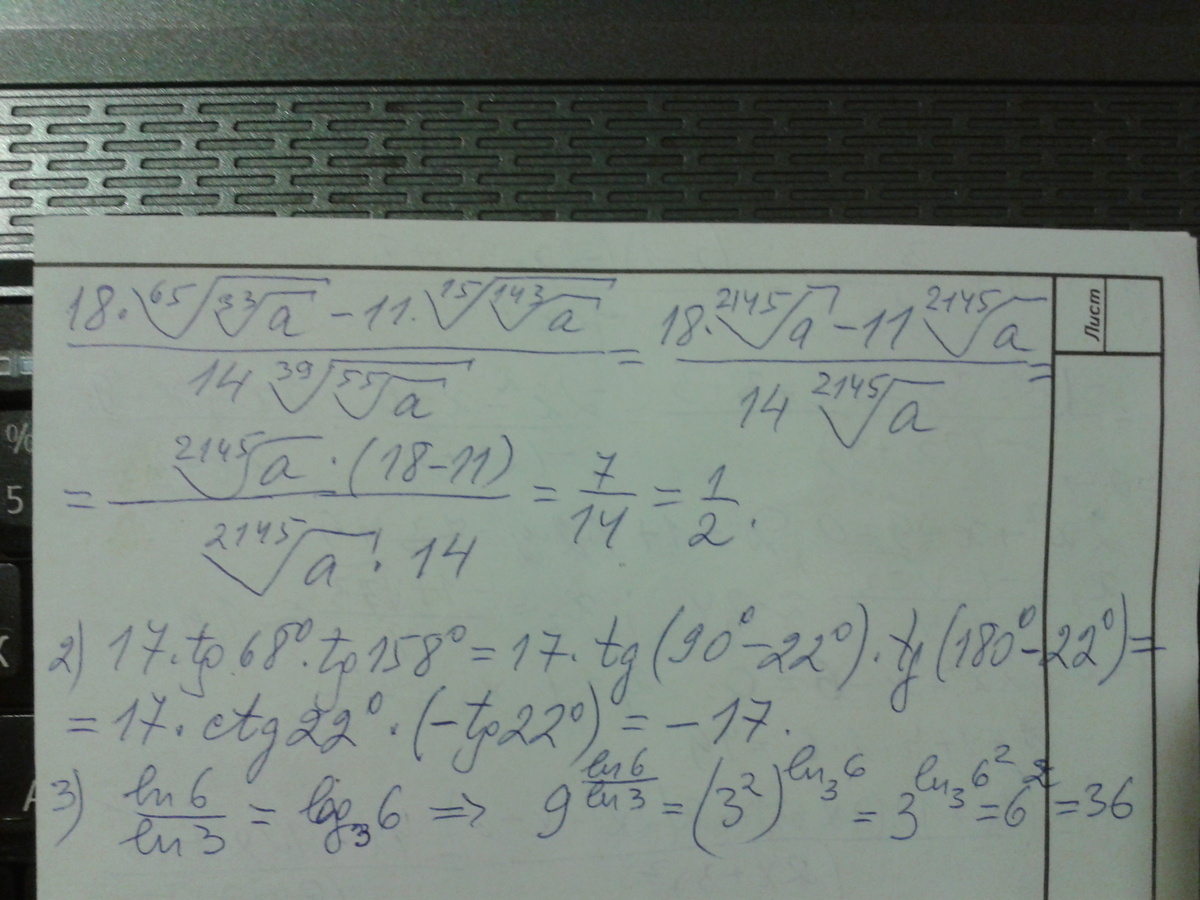 18·⁶⁵√(³³√a) − 11·¹⁵√(¹⁴³√a) / 14 ³⁹√(⁵⁵√a) = 18·²¹⁴⁵√a − 11 ²¹⁴⁵√a / 14 ²¹⁴⁵√a =
= ²¹⁴⁵√a · (18−11) / ²¹⁴⁵√a · 14 = 7/14 = 1/2.
2) 17·tg68°·tg158° = 17·tg(90°−22°)·tg(180°−22°) =
= 17·ctg22°·(−tg22°) = −17.
3) ln6/ln3 = log₃6 => 9^(ln6/ln3) = (3²)^(ln₃6) = 3^(ln₃6²) = 6² = 36
Лист
%
5